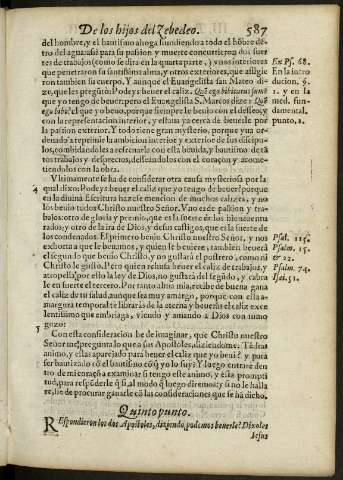 De los hijos del Zebedeo. 587
del hombre, y el bautismo ahoga hundiendo a todo el hōbre dē-
tro del agua: assi para su passion y muerte concurrieron dos suer
tes de trabajos (como se dira en la quarta parte,) vnos interiores
que penetraron su santissima alma, y otros exteriores, que afligie
ron tambien su cuerpo. Y aunque el Euangelista san Mateo di-
ze, que les pregūtò: Podeys beuer el caliz. Quē ego bibiturus sum? el
que yo tengo de beuer: pero el Euangelista S. Marcos dize: Quē
ego bibo? el que yo beuo, porque siempre le beuia con el desseo, y
con la representacion interior, y estaua ya cerca de beuerle por
la passion exterior. Y todo tiene gran mysterio, porque yua or-
denado a reprimir la ambicion interior y exterior de los discipu-
los, combidandoles a refrenarla con esta beuida, y bautismo de tā
tos trabajos y desprecios, desseandolos con el coraçon, y acome-
tiendolos con la obra.
Vltimamente se ha de considerar otra causa mysteriosa por la
qual dixo: Podeys beuer el caliz que yo tengo de beuer? porque
en la diuina Escritura haze se mencion de muchos calizes, y no
los beuio todos Christo nuestro Señor. Vno es de passion y tra-
bajos: otro de gloria y premio, que es la suerte de los bienauentu
rados: y otro de la ira de Dios, y de sus castigos, que es la suerte de
los condenados. El primero beuio Christo nuestro Señor, y nos
exhorta a que le beuamos, y quien le beuiere, tambien beuera
el segundo que beuio Christo, y no gustará el postrero, como ni
Christo le gustò. Pero quien rehusa beuer el caliz de trabajos, y
atropella por esso la ley de Dios, no gustará del segūdo, y cabra
le en suerte el tercero. Por tanto alma mia, recibe de buena gana
el caliz de tu salud, aunque sea muy amargo, porque con essa a-
margura temporal te libraràs de la eterna, y beueràs el caliz exce
lentissimo que embriaga, viendo y amando a Dios con sumo
gozo:
Con esta consideracion he de imaginar, que Christo nuestro
Señor me pregunta lo que a sus Apostoles, diziendome. Tēdras
animo, y estas aparejado para beuer el caliz que yo beui? y para
ser bautizado cō el bautismo cō q̄ yo lo fuy? Y luego entrare den
tro de mi coraçō a examinar si tengo este animo, y esta prompti
tud, para respōderle q̄ si, al modo q̄ luego diremos: y si no le halla
re, he de procurar ganarle cō las consideraciones que se hā dicho.
Quinto punto.
Respondieron los dos Apostoles, diziendo, podemos beuerle? Dixoles
Iesus
En Ps. 68.
En la intro
ducion. §.
1. y en la
med. fun-
damental.
punto, 2.
4
Psal. 115.
Psalm. 15.
& 22.
Psalm. 74.
Isai. 51.
5